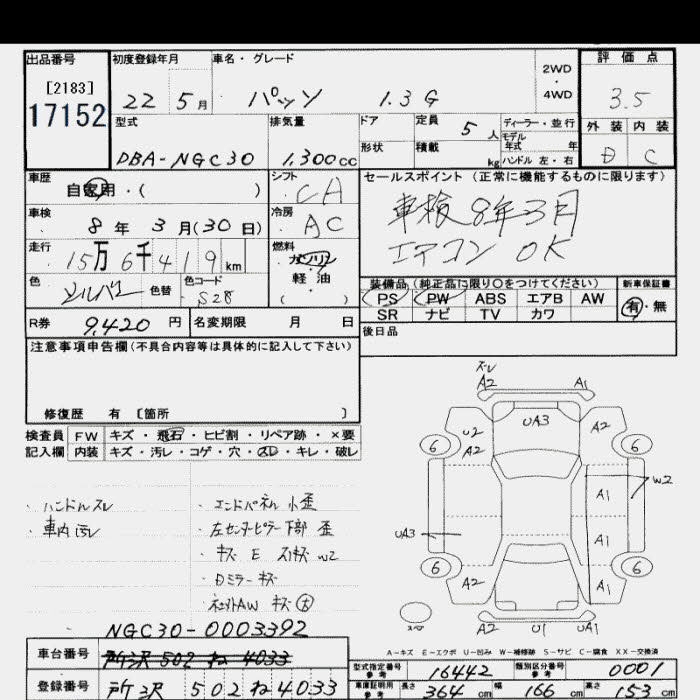 出品番号 初度登録年月 車名・グレード 2WD・4WD 評価点
[2183]
17152 22 5月 パッソ 1.3 G 3.5
型式 排気量 ドア 定員 5人 ディーラー・並行 外装 内装
モデル年式 年
DBA-NGC30 1,300cc 形状 積載 kg ハンドル 左・右 D C
車歴 自家用・( ) シフト CA セールスポイント (正常に機能するものに限ります)
車検 8年 3月(30日) 冷房 AC 車検8年3月
走行 15万6千419km 燃料 ガソリン エアコン OK
軽油
( )
色 シルバー 色替 色コード S28 装備品 (純正品に限り○をつけてください) 新車保証書
PS PW ABS エアB AW 有・無
R券 9,420円 名変期限 月 日 SR ナビ TV カワ
後日品
注意事項申告欄(不具合内容等は具体的に記入して下さい)
修復歴 有 [箇所 ]
検査員 FW キズ・飛石・ヒビ割・リペア跡・×要
記入欄 内装 キズ・汚レ・コゲ・穴・スレ・キレ・破レ
・ハンドルスレ
・車内汚レ
・エンドパネル小歪
・左センターピラー下部 歪
・キズ E スリキズ W2
・Dミラー キズ
A2 A1
UA3
U2 A2 A2
6 6
W2
A1
UA3 A1
6 6
A2 A1
A2 U1 UA2
A-キズ E-エクボ U-凹み W-補修跡 S-サビ C-腐食 XX-交換済
NGC30-0003392
車台番号 所沢 502 ね 4033 型式指定番号 参考 16442 類別区分番号 参考 0001
登録番号 所沢 502 ね 4033 車庫証明用 参考 長さ 364cm 幅 166cm 高さ 153cm